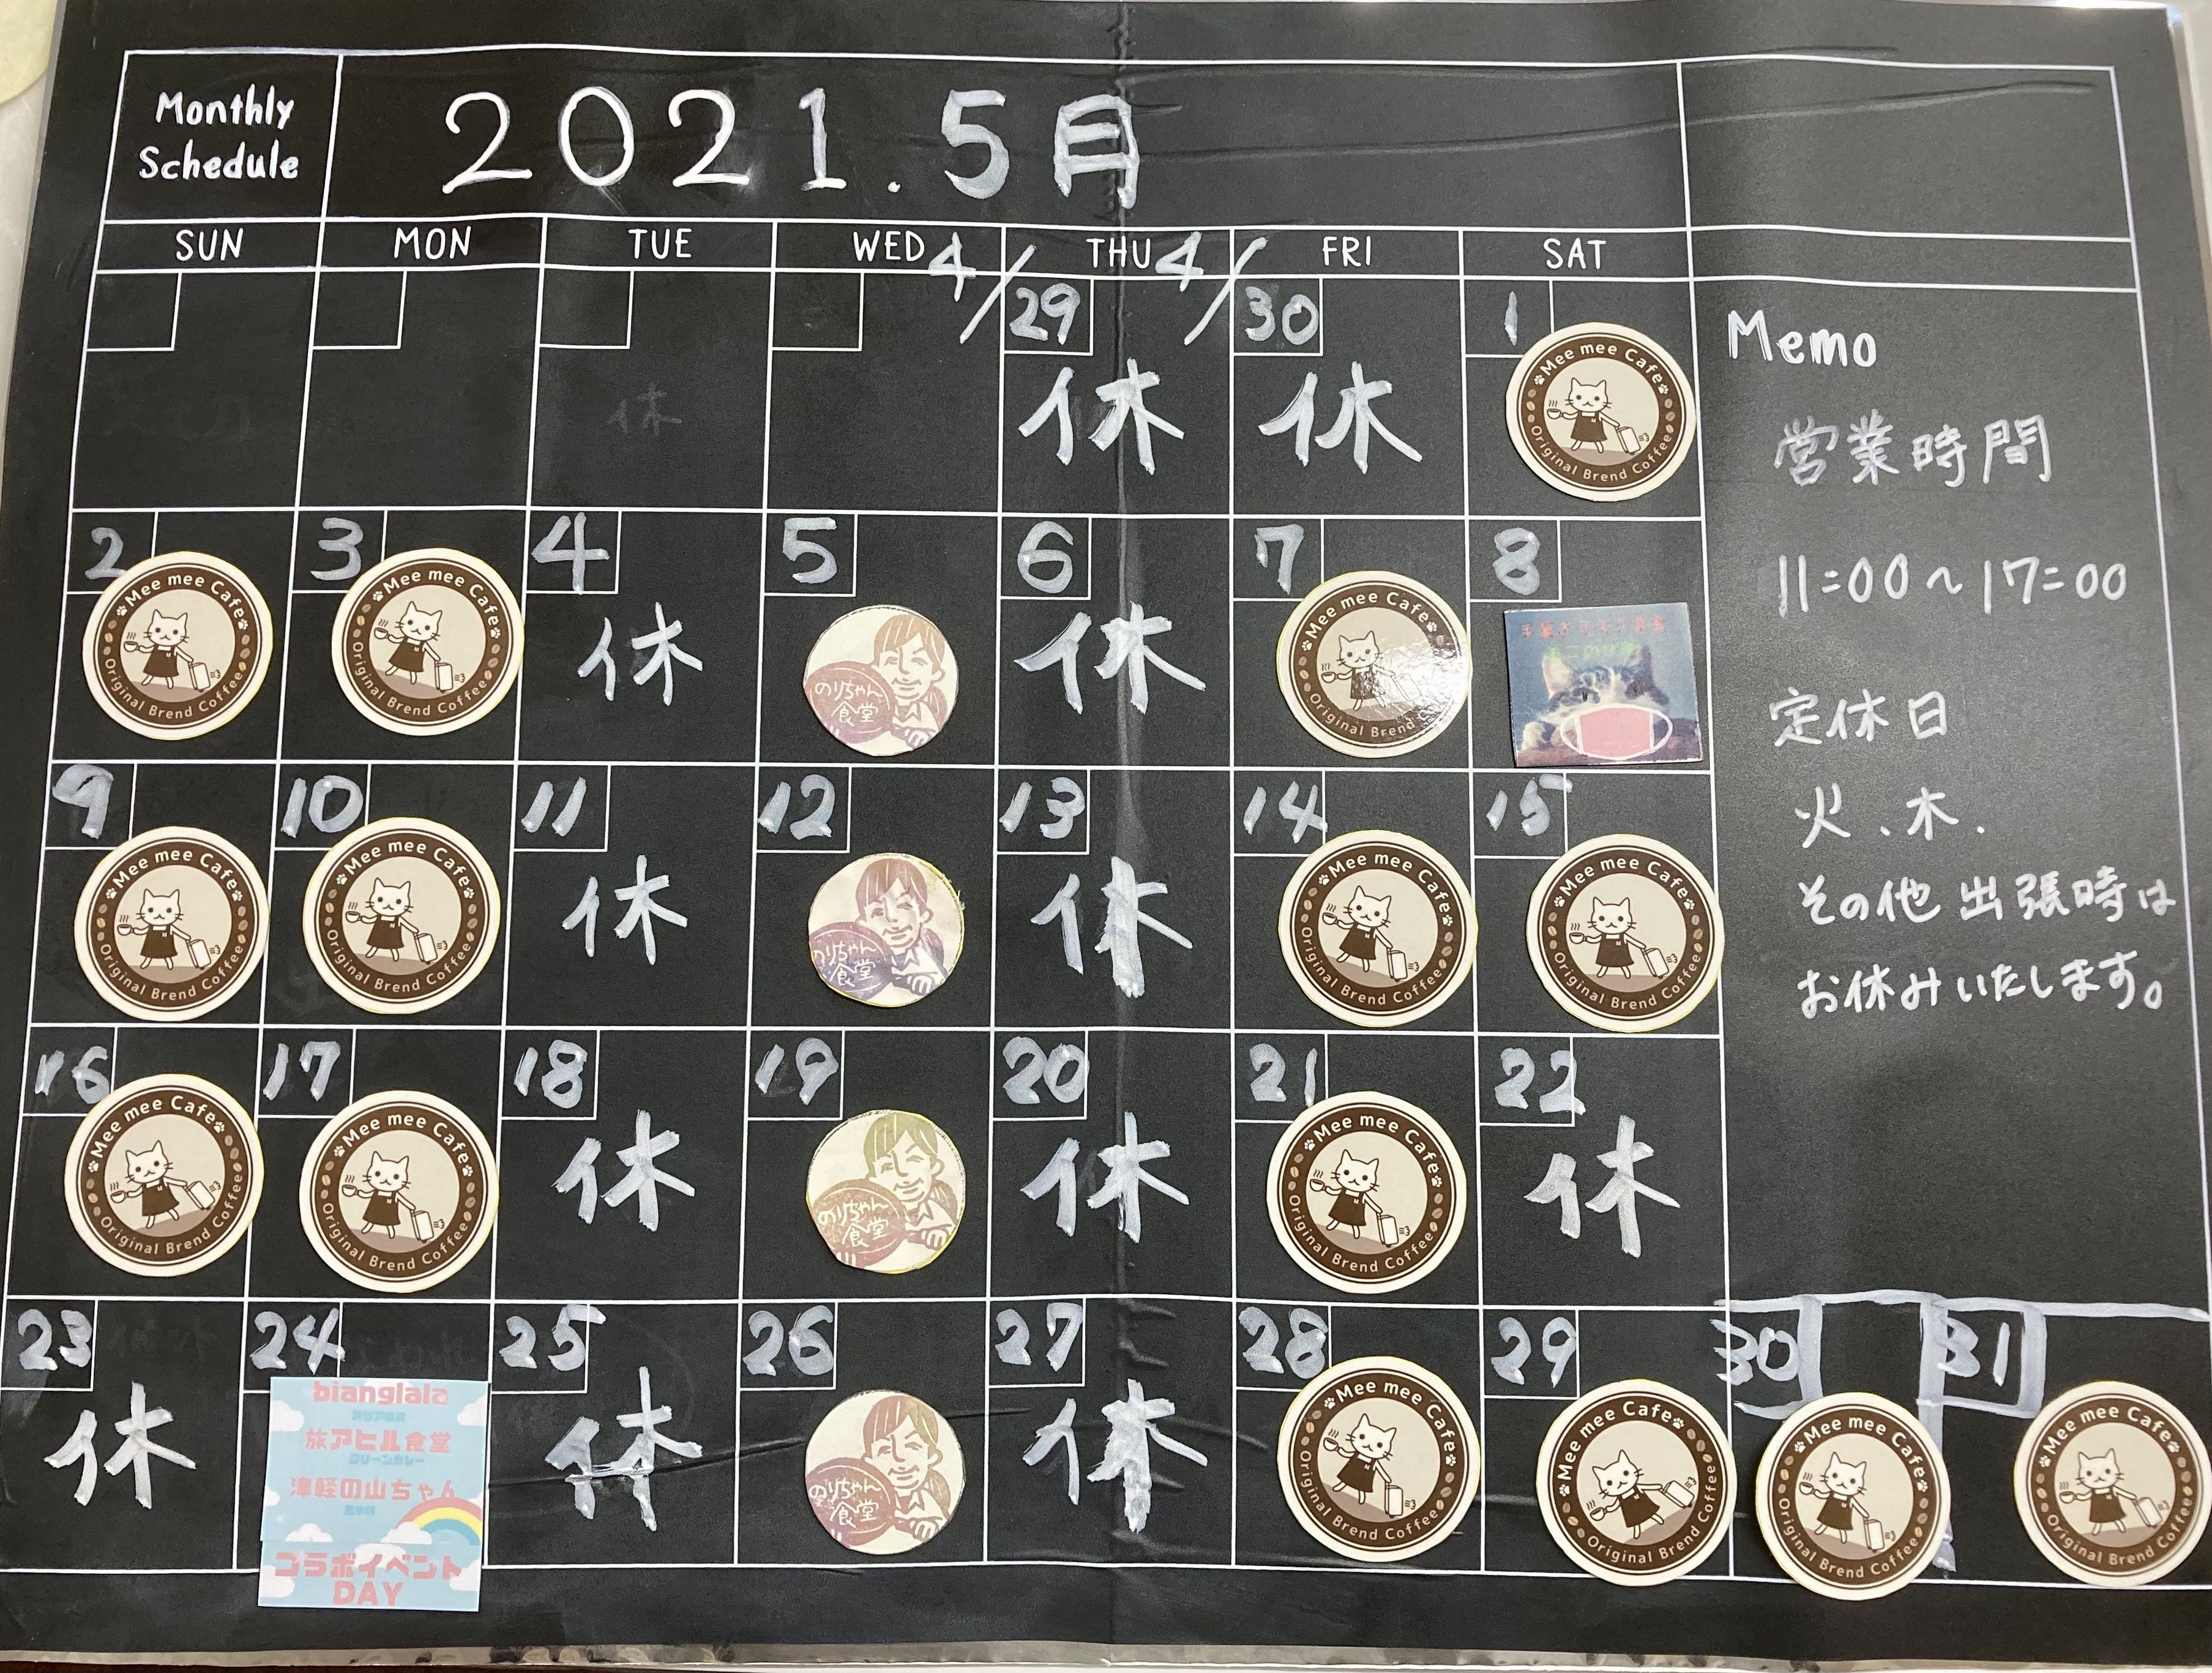 Monthly
Schedule
2021.5月
SUN MON TUE WED THU FRI SAT
4/29 4/30 1
休
休 休 Mee mee Cafe Original Brend Coffee
2 3 4 5 6 7 8
Mee mee Cafe Original Brend Coffee Mee mee Cafe Original Brend Coffee 休 のりちゃん食堂 休 Mee mee Cafe Original Brend Coffee
9 10 11 12 13 14 15
Mee mee Cafe Original Brend Coffee Mee mee Cafe Original Brend Coffee 休 のりちゃん食堂 休 Mee mee Cafe Original Brend Coffee Mee mee Cafe Original Brend Coffee
16 17 18 19 20 21 22
Mee mee Cafe Original Brend Coffee Mee mee Cafe Original Brend Coffee 休 のりちゃん食堂 休 Mee mee Cafe Original Brend Coffee 休
23 24 25 26 27 28 29 30 31
休
bianglala
旅アヒル食堂
グリーンカレー
津軽の山ちゃん
コラボイベント
DAY
休 のりちゃん食堂 休 Mee mee Cafe Original Brend Coffee Mee mee Cafe Original Brend Coffee Mee mee Cafe Original Brend Coffee Mee mee Cafe Original Brend Coffee
Memo
営業時間
11:00～17:00
定休日
火、木、
その他出張時は
お休みいたします。